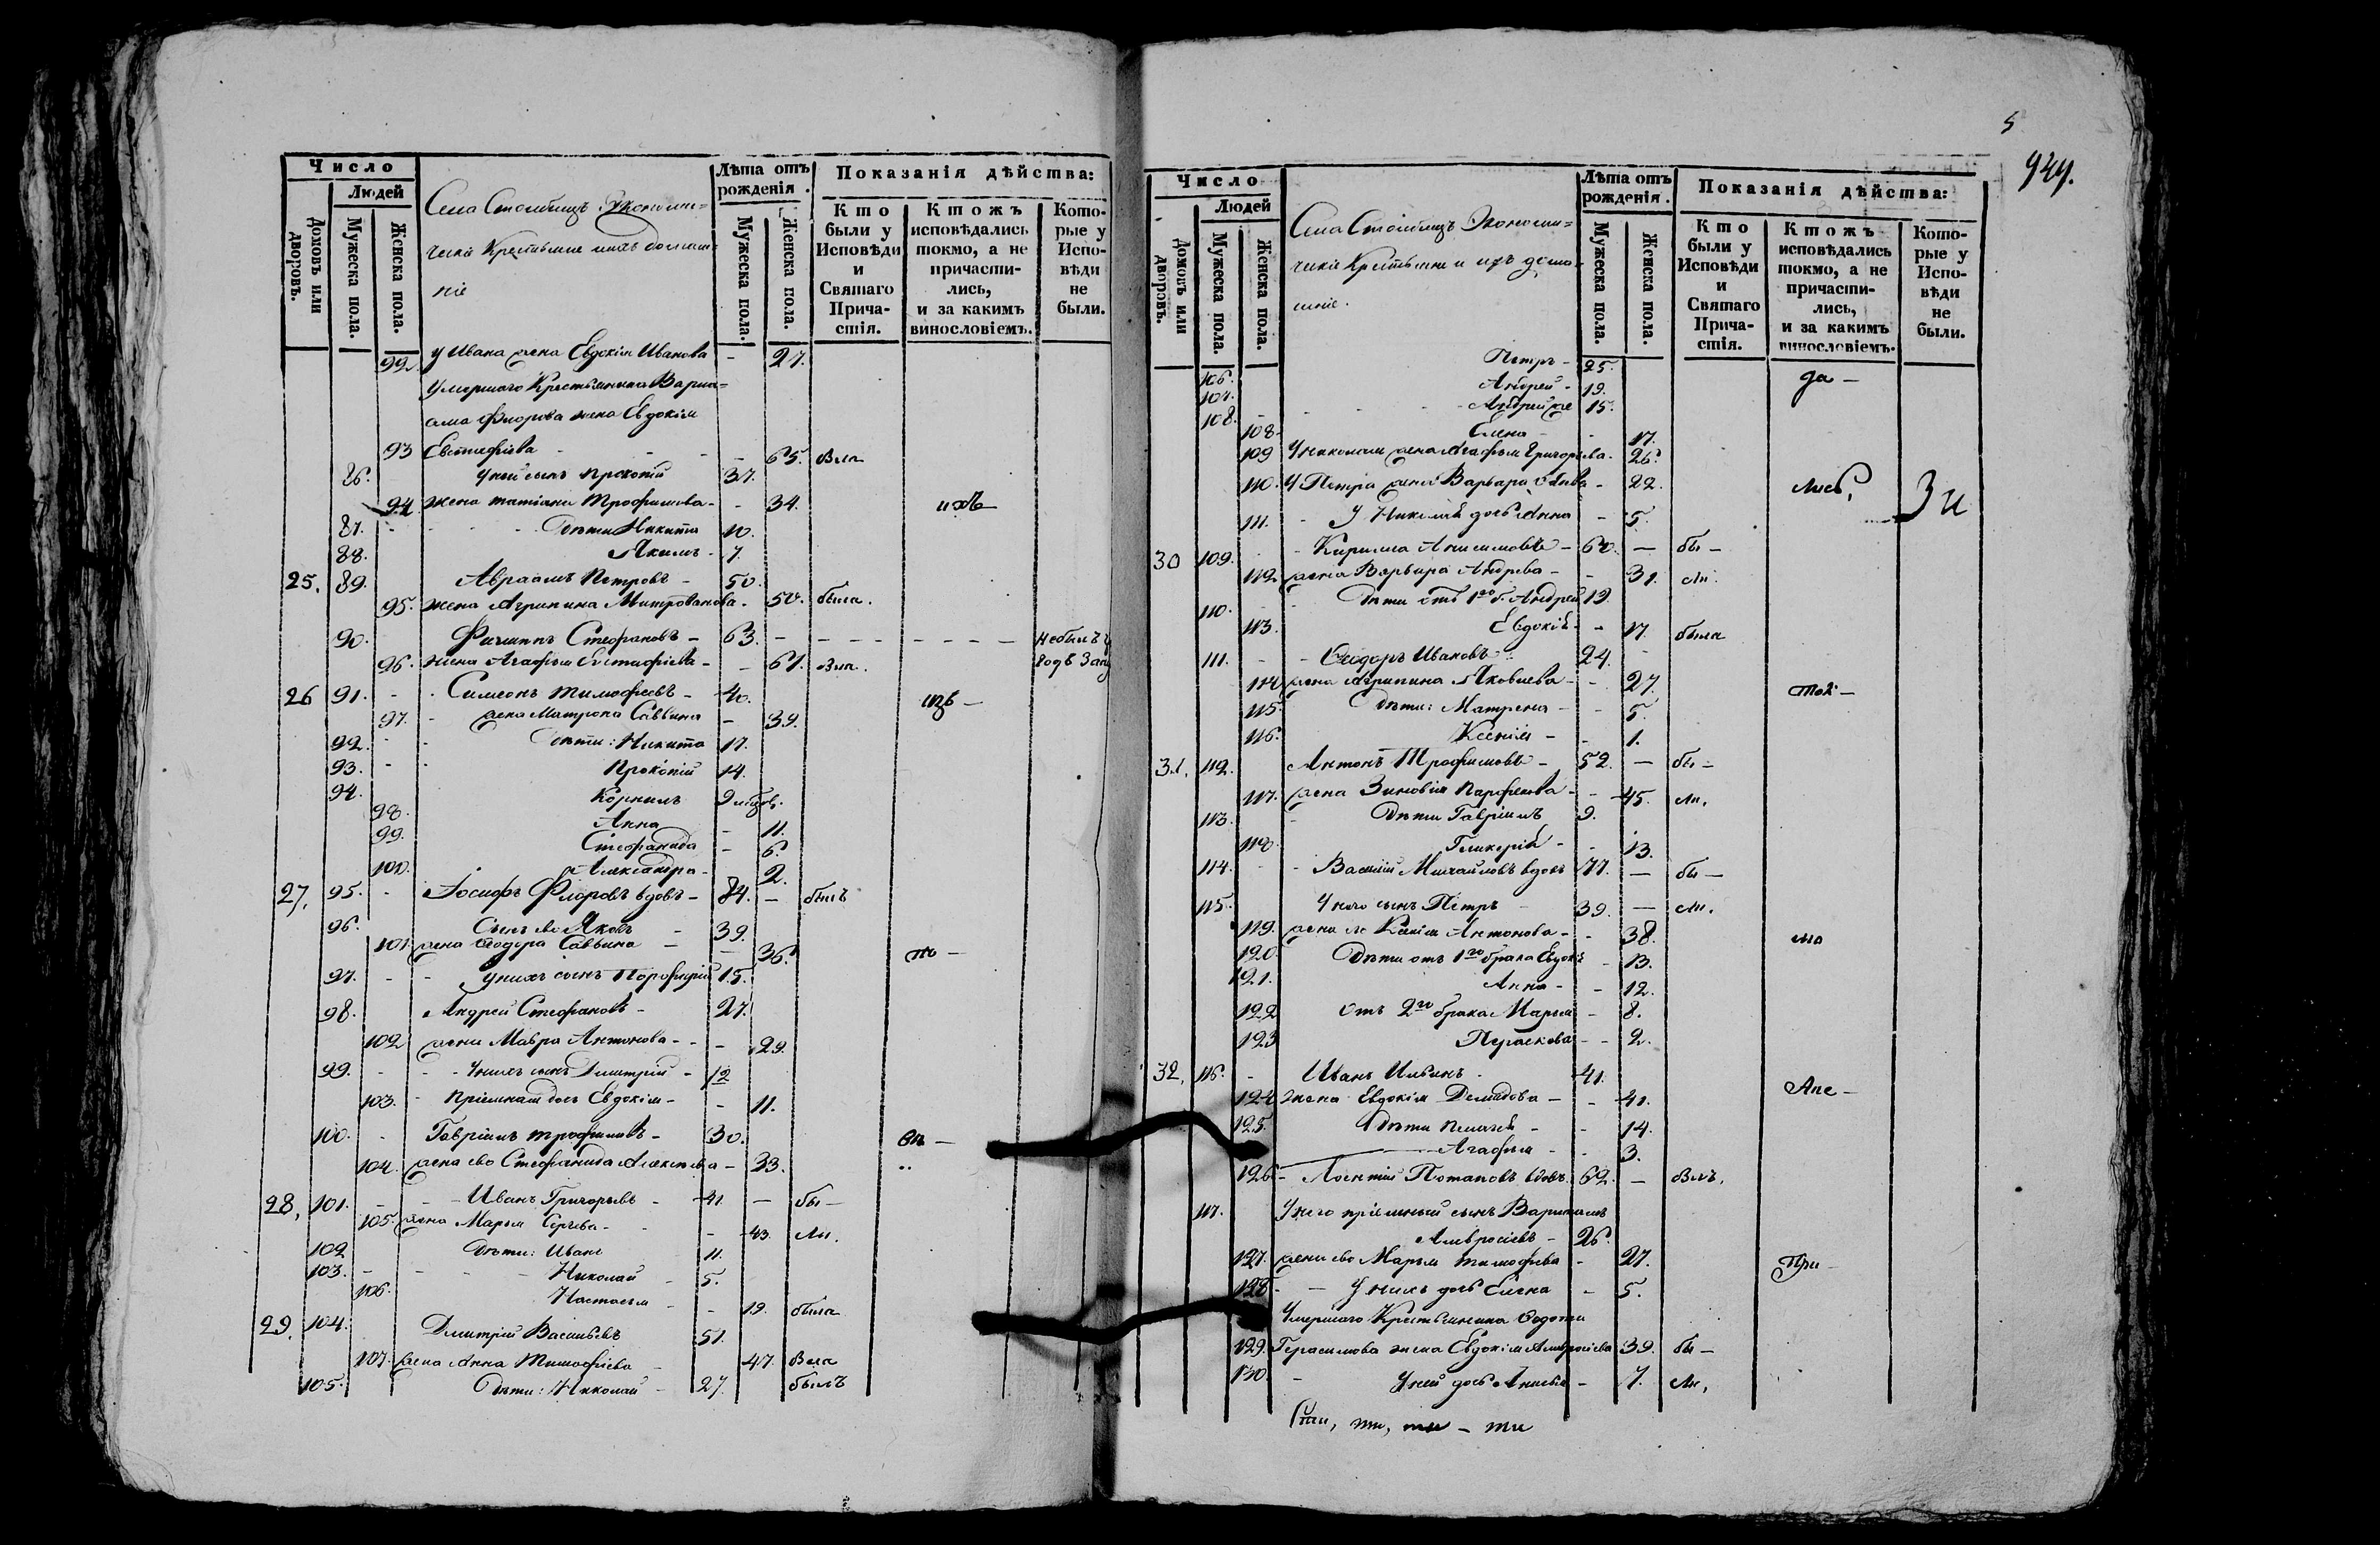 Число
Людей
Домовъ или дворовъ.
Мужеска пола.
Женска пола.
Села Столбищъ Экономи=
ческие Крестьяне ихъ домаш=
ніе
Лѣта отъ рожденія.
Мужеска пола.
Женска пола.
Показанія дѣйства:
Кто были у Исповѣди и Святаго Причастія.
Ктожъ исповѣдались токмо, а не причастились, и за какимъ винословіемъ.
Которые у Исповѣди не были.
92. У Ивана жена Евдокія Иванова - 27.
Умершаго Крестьянина Варла=
ама Флорова жена Евдокія
93 Евстифіева - - 65. была
86. У ней сынъ Прокопій 37.
94 жена Татіана Трофимова - - 34.
87. - - - Дѣти Никита 10.
88. Якимъ - 7.
25. 89. Авраамъ Петровъ - 50.
95. жена Агрипина Митрованова. 50. была.
90. Филиппъ Стефановъ - 63. - - - - небылъ
96. жена Агафья Евстафіева - - 61.
26 91. - Симеонъ Тимофеевъ - 40.
97. - жена Матрона Саввина - 39.
92. - - Дѣти: Никита 17.
93. - - Прокопій 14.
94. Корнилъ 9
98. Анна - 11.
99. Стефанида - 6.
100. Александра - 2.
27. 95. - Іосифъ Флоровъ вдовъ - 84. - былъ
96. Сынъ его Яковъ - 39.
101 жена Ѳеодора Саввина - - 36.
97. - - у нихъ сынъ Порфирій 15.
98. Андрей Стефановъ - 27.
102 жена Мавра Антонова - - - 29.
99. - - - У нихъ сынъ Димитрій - 12
103. - Пріемная дочь Евдокія - - 11.
100. - Гавріилъ Трофимовъ - 30.
104. жена его Стефанида Алексеева - 33.
28, 101. - - Иванъ Григорьевъ - 41. - бы -
105. жена Марья Сергѣева - - 43. ли.
102 Дѣти: Иванъ 11.
103. - - - - Николай - 5.
106. Настасья - - 19. была
29, 104. Димитрій Васильевъ 51.
107. жена Анна Тимофіева - 47. была
105. Дѣти: Николай - 27. былъ
5
949.
Число
Людей
Домовъ или дворовъ.
Мужеска пола.
Женска пола.
Села Столбищъ Экономи=
ческие Крестьяне и ихъ дома=
шніе.
Лѣта отъ рожденія.
Мужеска пола.
Женска пола.
Показанія дѣйства:
Кто были у Исповѣди и Святаго Причастія.
Ктожъ исповѣдались токмо, а не причастились, и за какимъ винословіемъ.
Которые у Исповѣди не были.
106. Петръ - 25. да -
107. Андрей - 19.
108. - - - - Андрей же 15.
108. Елена - - 17.
109 У Николая жена Агафья Григорьева. 26.
110. У Петра жена Варвара - 22.
111. - У Николая дочь Анна - 5.
30 109. - Кирилла Анисимовъ - 60. - бы -
112. жена Варвара Андреева - - 31. ли.
110. - - Дѣти отъ 1го б. Андрей 19.
113. Евдокія - - 17. была
111. - - Ѳеодоръ Ивановъ - 24.
114 жена Агрипина Яковлева - - 27.
115. Дѣти: Матрена - - 5.
116. Ксенія - - 1.
31. 112. Антонъ Трофимовъ - 52. - бы -
117. жена Зиновія Парфенова - - 45. ли.
113. - Дѣти Гавріилъ 9.
118. Гликерія - - 13.
114. - - Василій Михайловъ вдовъ 77. - бы -
115. У него сынъ Петръ - 39. - ли.
119. жена Ксенія Антонова - - 38.
120. Дѣти отъ 1го брака Евдокія - 13.
121. Анна - - 12.
122 Отъ 2го брака Марья - 8.
123 Параскева - - 2.
32. 116. - Иванъ Ильинъ - 41.
124 жена Евдокія Демидова - - 41.
125. Дѣти Пелагея - - 14.
Агафья - - 3.
126 - Потаповъ вдовъ. 62. -
117. У него пріемный сынъ
Амвросіевъ - 26.
127. жена его Марья Тимофеева - 27.
128 - - У нихъ дочь Елена - 5.
Умершаго Крестьянина
129. Герасимова жена Евдокія Амвросіева 39. бы -
130 - У ней дочь Анисья - 7. ли,